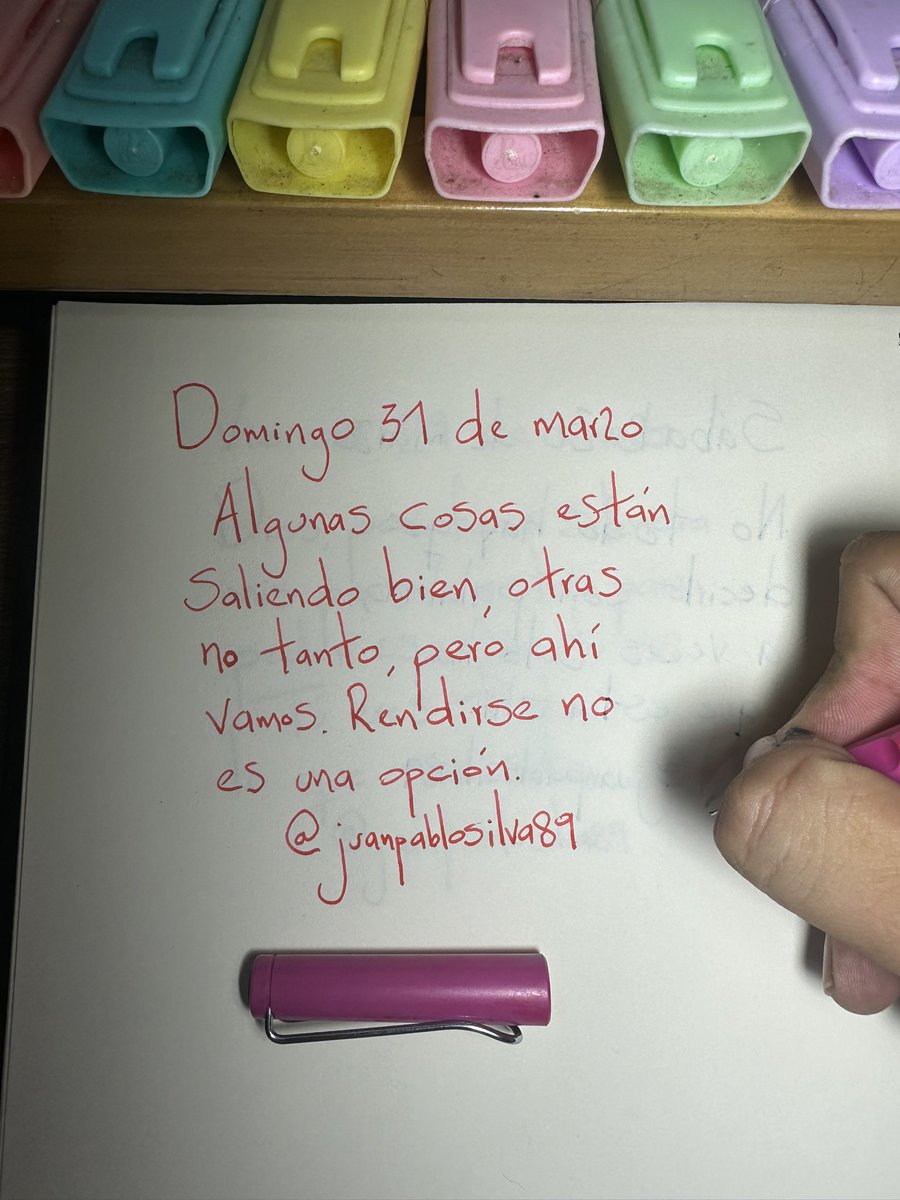 Domingo 31 de marzo
Algunas cosas están
Saliendo bien, otras
no tanto, pero ahí
vamos. Rendirse no
es una opción.
@juanpablosilva89